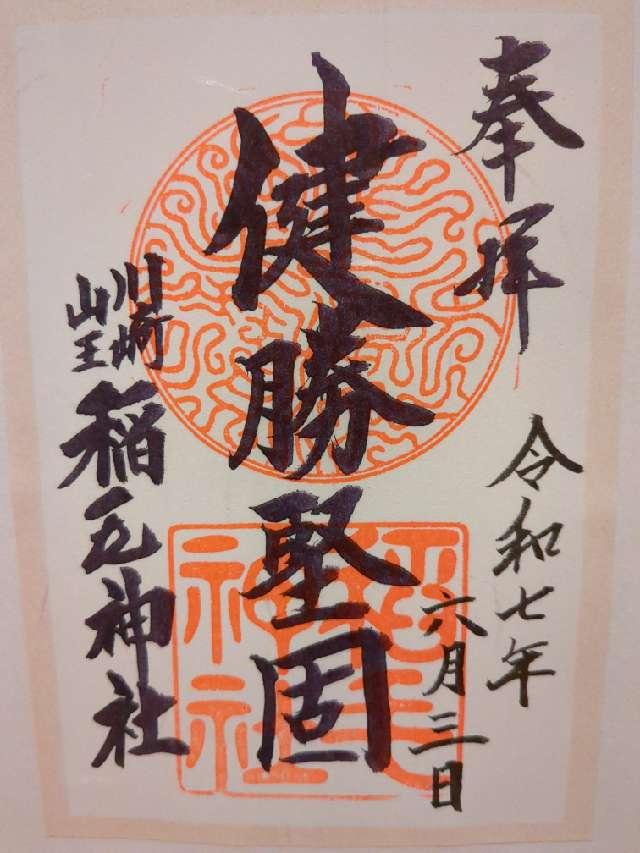 奉拝
令和七年
六月三日
健勝堅固
川崎
山王
稲毛神社
稲毛
神社